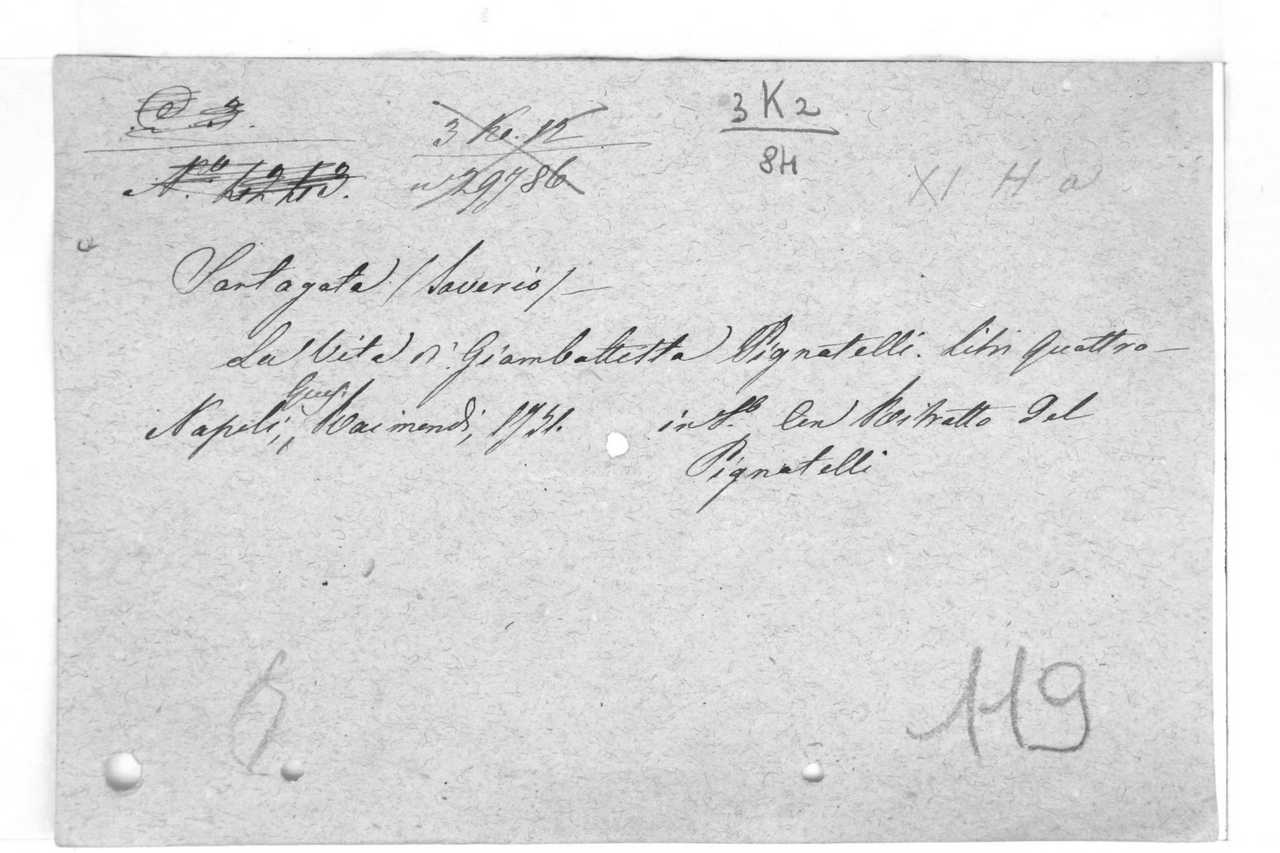 3 Ka. 12
n 29786
3 K 2
84
XI H a
Santagata (Saverio) —
La Vita di Giambattista Pignatelli. Libri quattro —
Napoli, Gius. Raimondi, 1751. in 4.º Con Ritratto del
Pignatelli
119